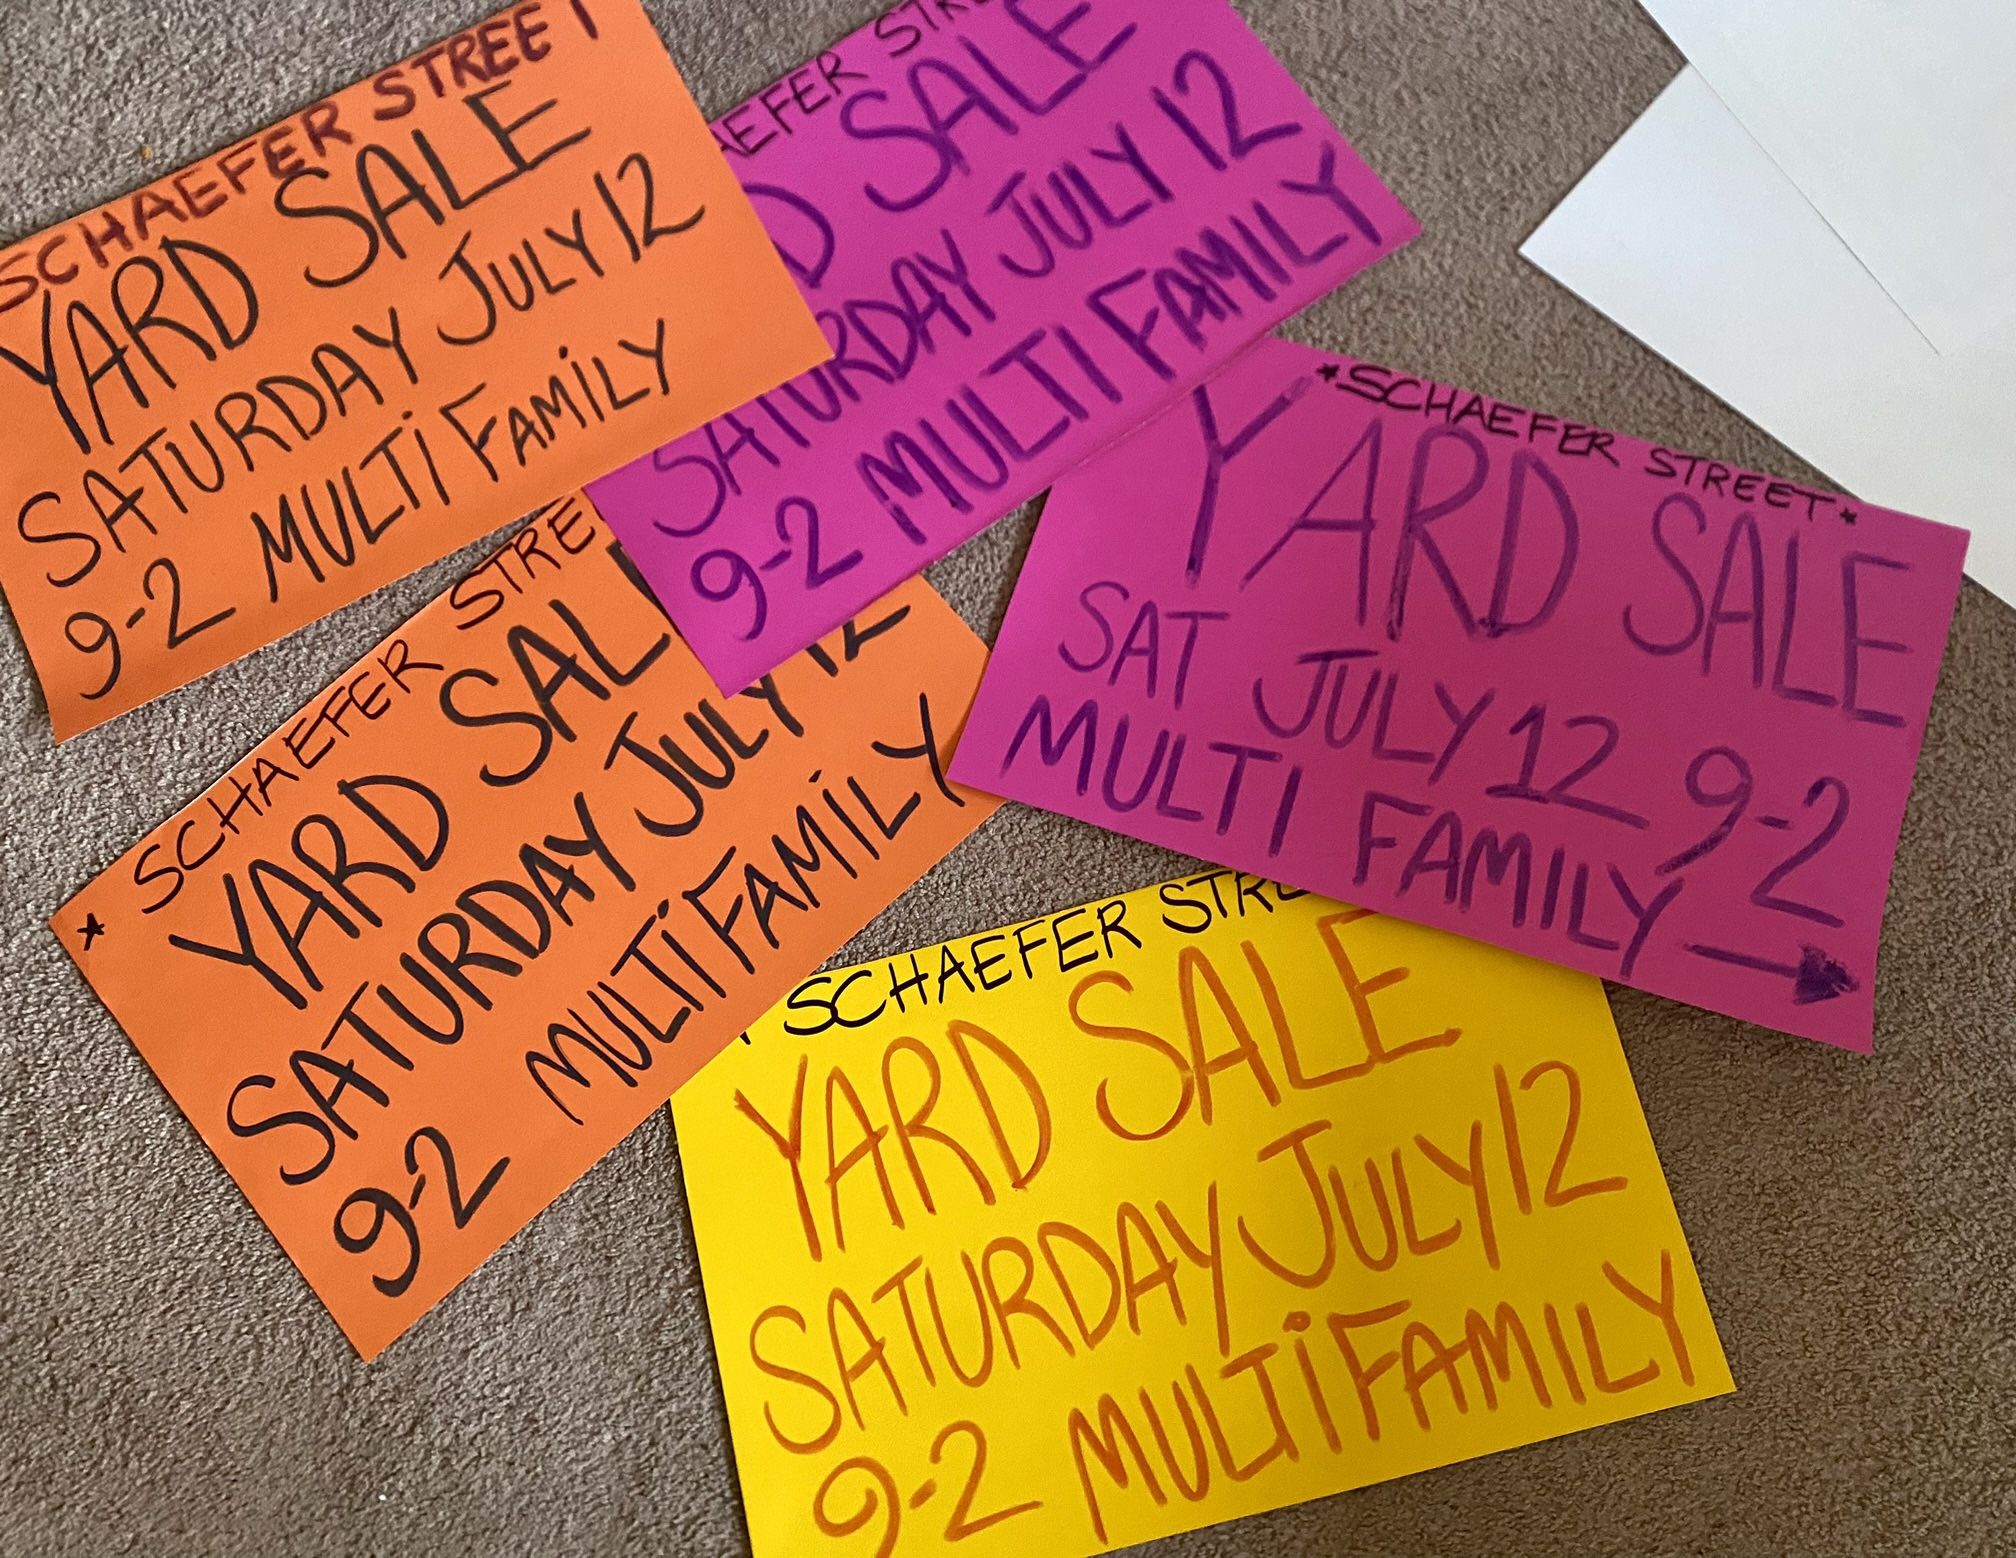 SCHAEFER STREET
YARD SALE
SATURDAY JULY 12
9-2 MULTI FAMILY
SALE
SATURDAY JULY 12
9-2 MULTI FAMILY
*SCHAEFER STREET*
YARD SALE
SAT JULY 12 9-2
MULTI FAMILY →
* SCHAEFER
YARD
SATURDAY JULY 12
9-2 MULTI FAMILY
SCHAEFER
YARD SALE
SATURDAY JULY 12
9-2 MULTI FAMILY